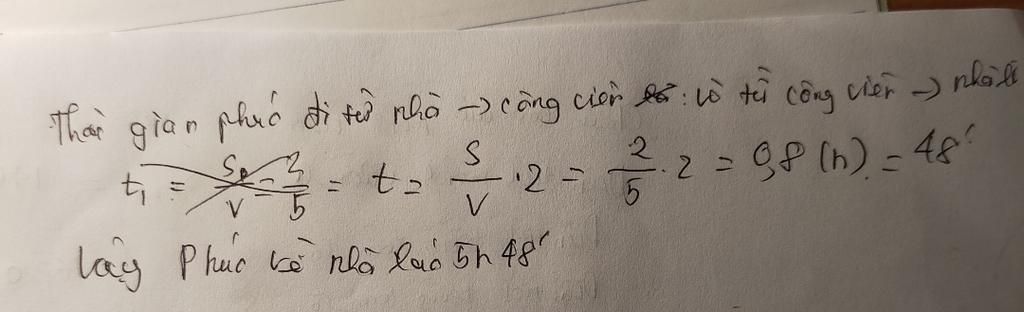 Thời gian phúc đi từ nhà → công viên và từ công viên → nhà là
t₁ = S/V = 2/5 = t = S/V · 2 = 2/5 · 2 = 0,8 (h) = 48'
Vậy Phúc về nhà lúc 5h 48'